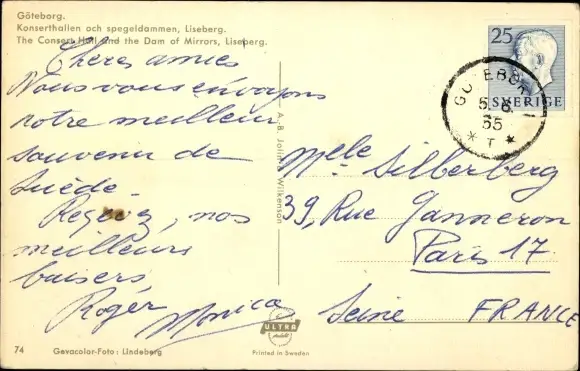 Göteborg.
Konserthallen och spegeldammen, Liseberg.
The Concert Hall and the Dam of Mirrors, Liseberg.
Chères amies
Nous vous envoyons
notre meilleur
souvenir de
Suède.
Recevez, nos
meilleurs
baisers,
Roger
Monica
A. B. Wilkenson
25
SVERIGE
GÖTEBORG 1
5. 9.
55
* T *
Melle Silberberg
39, Rue Ganneron
Paris 17
Seine FRANCE
ULTRA
74 Gevacolor-Foto: Lindeberg
Printed in Sweden